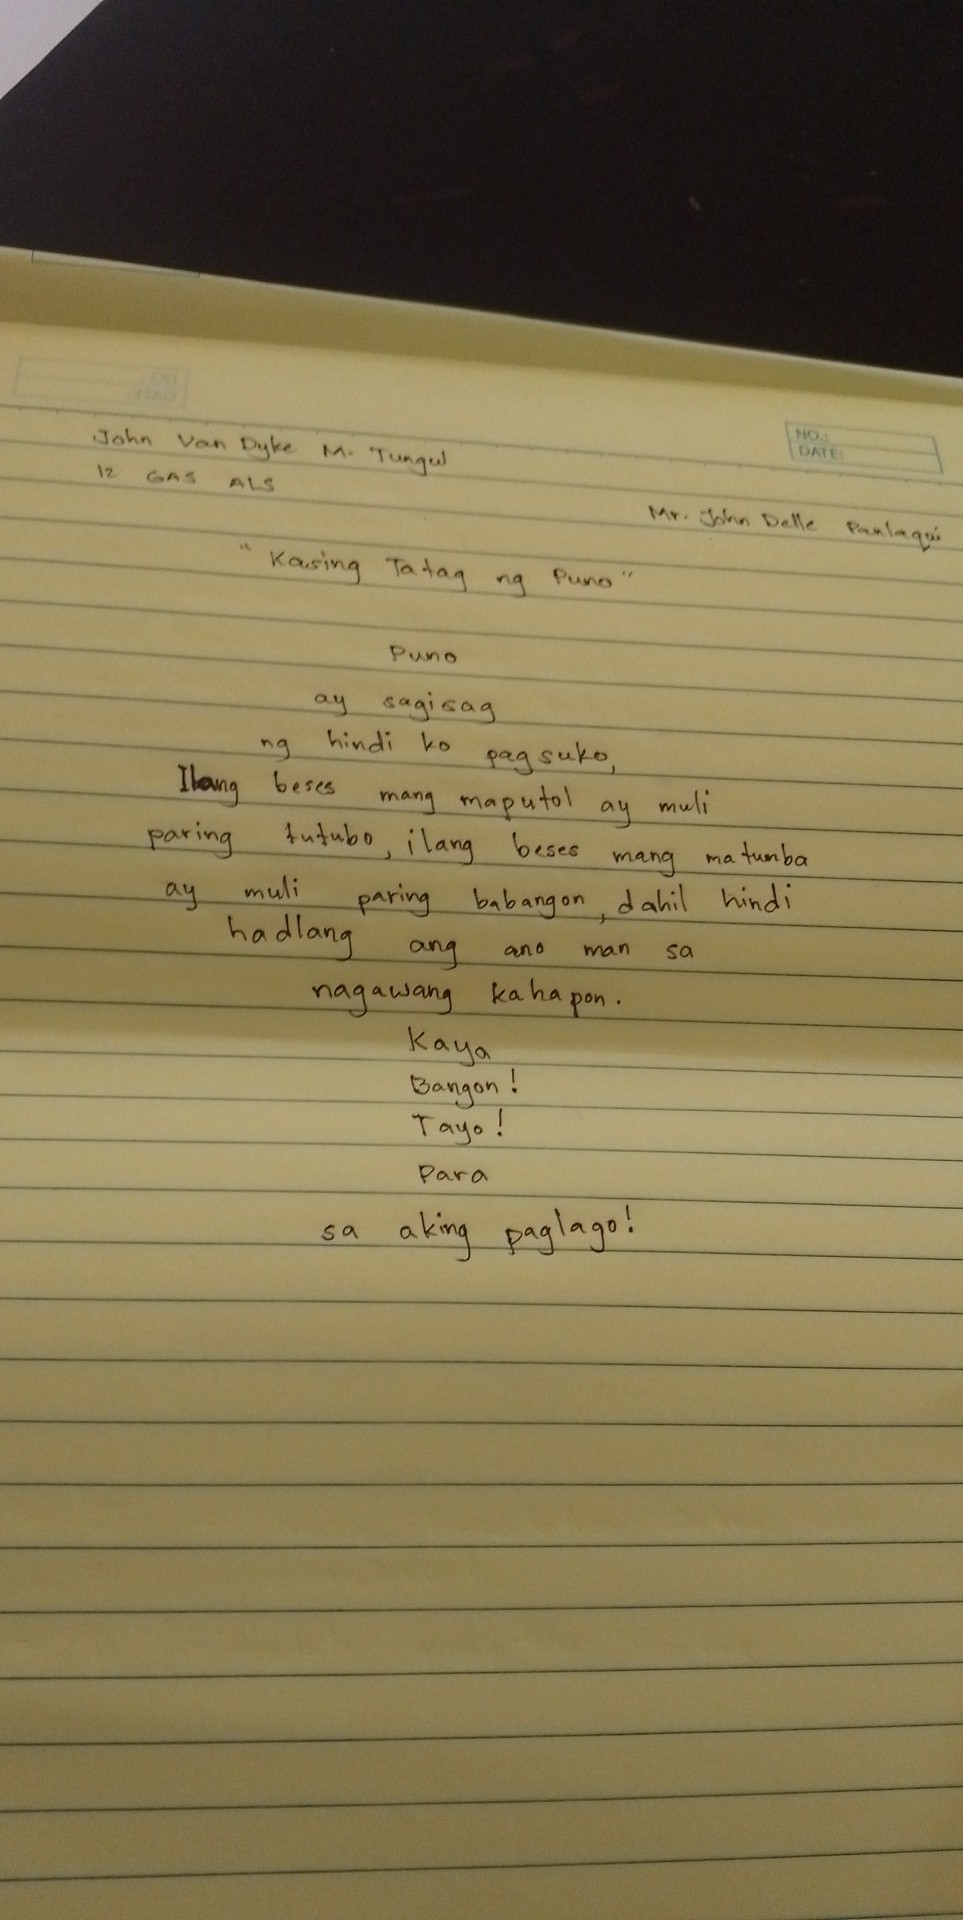 NO.:
DATE:
John Van Dyke M. Tungul
12 GAS ALS
Mr. John Delle Panlaqui
"Kasing Tatag ng Puno"
Puno
ay sagisag
ng hindi ko pagsuko,
Ilang beses mang maputol ay muli
paring tutubo, ilang beses mang matumba
ay muli paring babangon, dahil hindi
hadlang ang ano man sa
nagawang kahapon.
Kaya
Bangon!
Tayo!
Para
sa aking paglago!